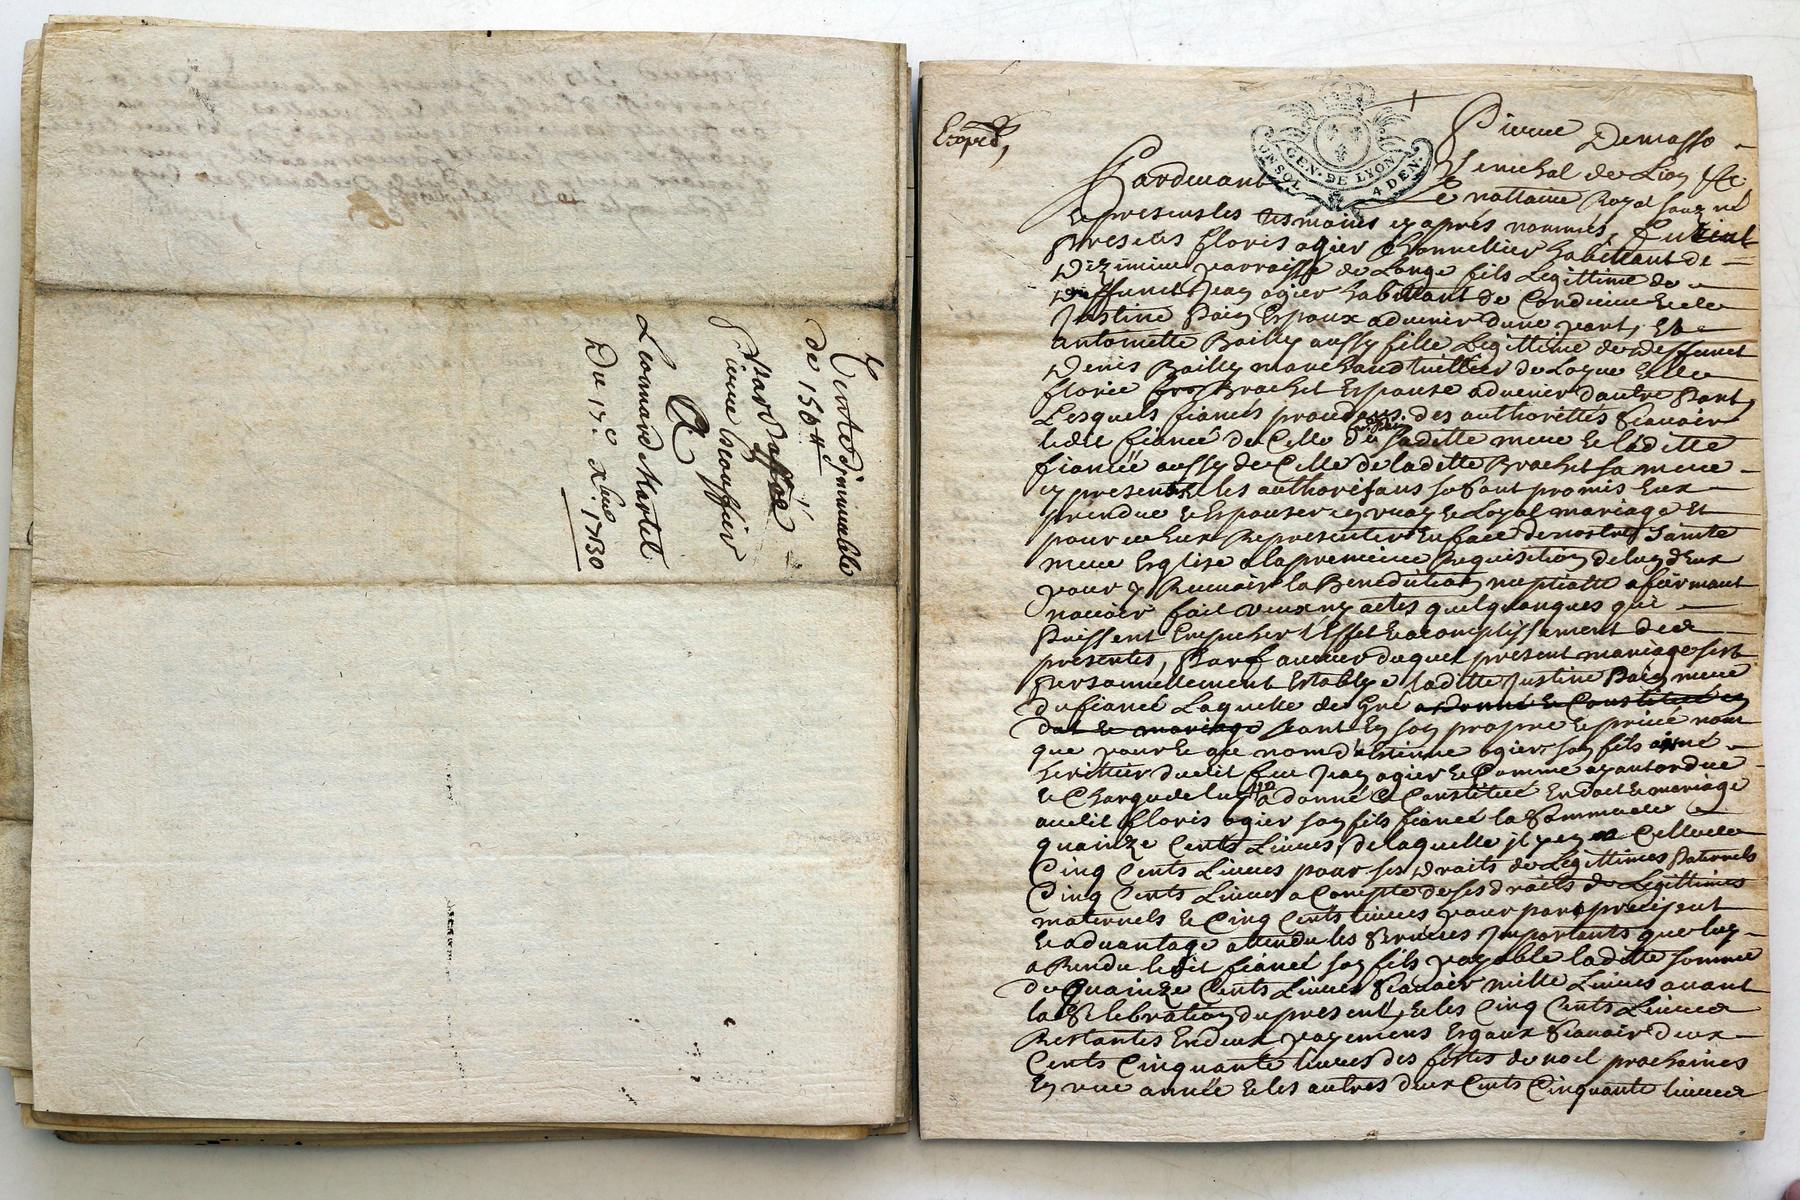 Vente d'jmmeuble
de 150 ⁱᵗ
par
Pierre
A
Leonnard Martel
Du 17.e xbre. 1730
Expéd,
GEN. DE LYON
UN SOL
4 DEN.
Pierre Demasso
Senechal de Lion &c
Pardevant Le nottaire Royal
presents les tesmoins cy après nommés, furent
Presents floris ogier habitant de
parroisse de Longe fils Legittime de
deffunct Jean ogier habitant de Condrieu & de
Justine Pain Espoux aduenir dune part, Et
antoinette Bailly aussy fille Legittime de deffunct
Denis Bailly marchand tuillier de & de
florie Brachet Espouse aduenir d'autre Part
Lesquels fiancés des authorittés sçauoir
ledit fiancé de Celle de laditte mere & laditte
fiancée aussy de Celle de laditte Brachet sa mere
cy presentes & les authorisans se sont promis Eux
prendre & Espouser en vray & Loyal mariage Et
pour ce Eux Representer En face de nostre Sainte
mere Esglise a la premiere Requisition de lun d'Eux
pour y Receuoir la Benediction nuptialle afirmant
nauoir fait vœux ny actes quelquonques qui
Puissent Empecher l'Effet & acomplissement des
presentes, En faueur duquel present mariage sest
Personnellement Establye laditte Justine Pain mere
du fiancé Laquelle de Gré a donné & Constitué en
dot de mariage tant En son propre & priué nom
que pour & au nom d'Estienne ogier son fils aisné
herittier dudit feu Jean ogier & Comme ayant ordre
& Charge de luy a donné & Constitué En dot de mariage
audit floris ogier son fils fiancé la Somme de
quainze Cents Liures, de laquelle il y en a Celle de
Cinq Cents Liures pour ses Droits de Legittimes Paternels
Cinq Cents Liures a Compte de ses droits de Legittimes
maternels & Cinq Cents liures pour preciput
& aduantage attendu les Seruices Jmportants que luy
a Rendu ledit fiancé son fils payable laditte somme
de Quainze Cents Liures Sçauoir mille Liures auant
la Celebration du present, & les Cinq Cents Liures
Restantes En deux payemens Esgaux Sçauoir deux
Cents Cinquante liures des festes de noel prochaines
En une année & les autres deux Cents Cinquante liures